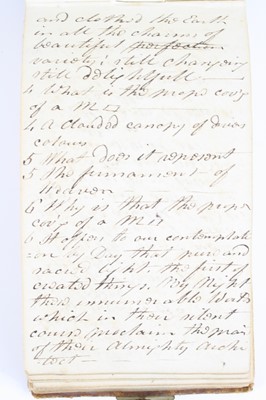 and clothed the Earth
in all the charms of
beautiful perfection
variety; still changing
still delightfull
4 What is the prope cov'g
of a M L
4 A clouded canopy of divers
colours
5 What does it represent
5 The firmament of
Heaven
6 Why is that the prope
cov'g of a M L
6 It offers to our contemplat-
ion by Day that pure and
sacred light the first of
created things. By Night
those innumerable Stars
which in their silent
course proclaim the
of their Almighty Archi
tect